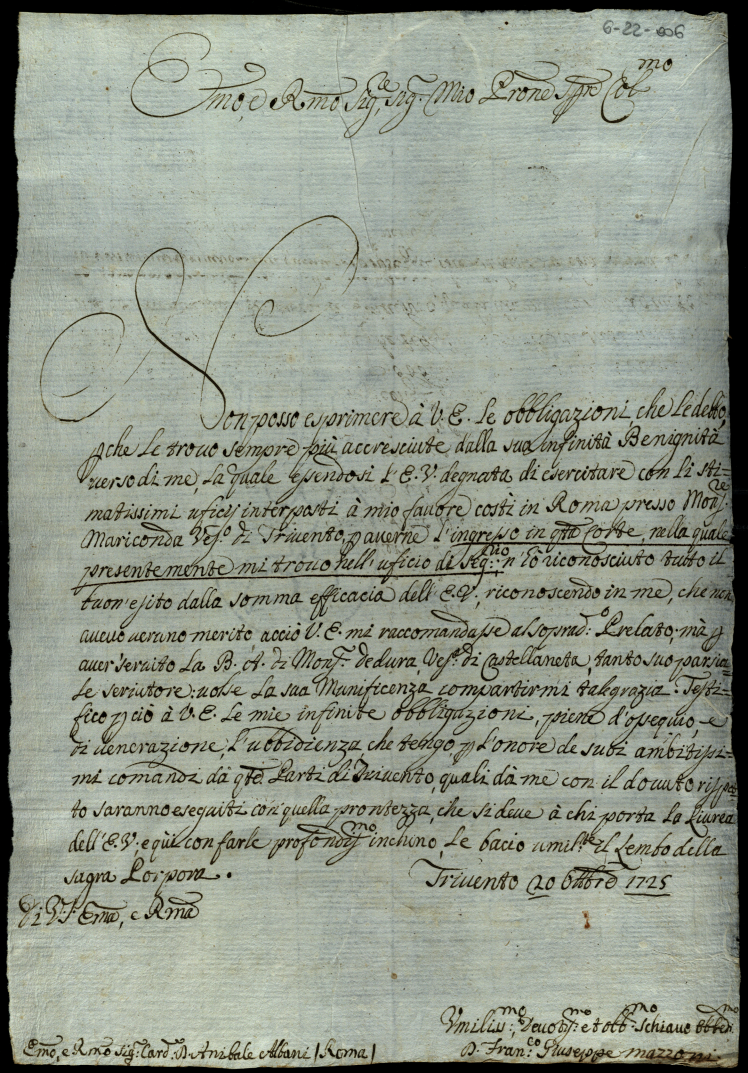 6-22-006
Emo, e Rmo Sig.re, Sig.r Mio Prone Sp̄re Col.mo
Non posso esprimere à V. E. le obbligazioni, che le debbo,
p che le trovo sempre più accresciute dalla sua infinità Benignità
verso di me, la quale essendosi l'E. V. degnata di esercitare con li sti-
matissimi uficij interposti à mio favore costì in Roma presso Mons.re
Mariconda Vesc.o di Trivento, p averne l'ingresso in qta Corte, nella quale
presentemente mi trovo nell'uficio di Seg.rio: n'hò riconosciuto tutto il
buon'esito dalla somma efficacia dell'E. V., riconoscendo in me, che non
avevo verano merito, acciò V. E. mi raccomandasse al soprad.o Prelato, mà p
aver servito la B. M. di Mons.r dedura, Vesc.o di Castellaneta, tanto suo parzia-
le servitore: volse la sua Munificenza compartirmi tal grazia. Testi-
fico p ciò à V. E. le mie infinite obbligazioni, piene d'ossequio, e
di venerazione, l'ubbidienza che tengo p l'onore de suoi ambitissi-
mi comandi dà qte Parti di Trivento, quali dà me con il dovuto rispet-
to saranno eseguiti con quella prontezza, che si deve à chi porta la Livrea
dell'E. V. e quì con farle profondis.mo inchino, le bacio umil.te il Lembo della
sagra Porpora.
Trivento 20 Ottbre 1725
Di V.ra Ema, e Rma
Umiliss.mo, Devotis.mo et obb.mo schiavo obblig.mo
D. Fran.co Giuseppe Mazzoni
Emo, e Rmo Sig.r Card.l D. Anibale Albani / Roma /